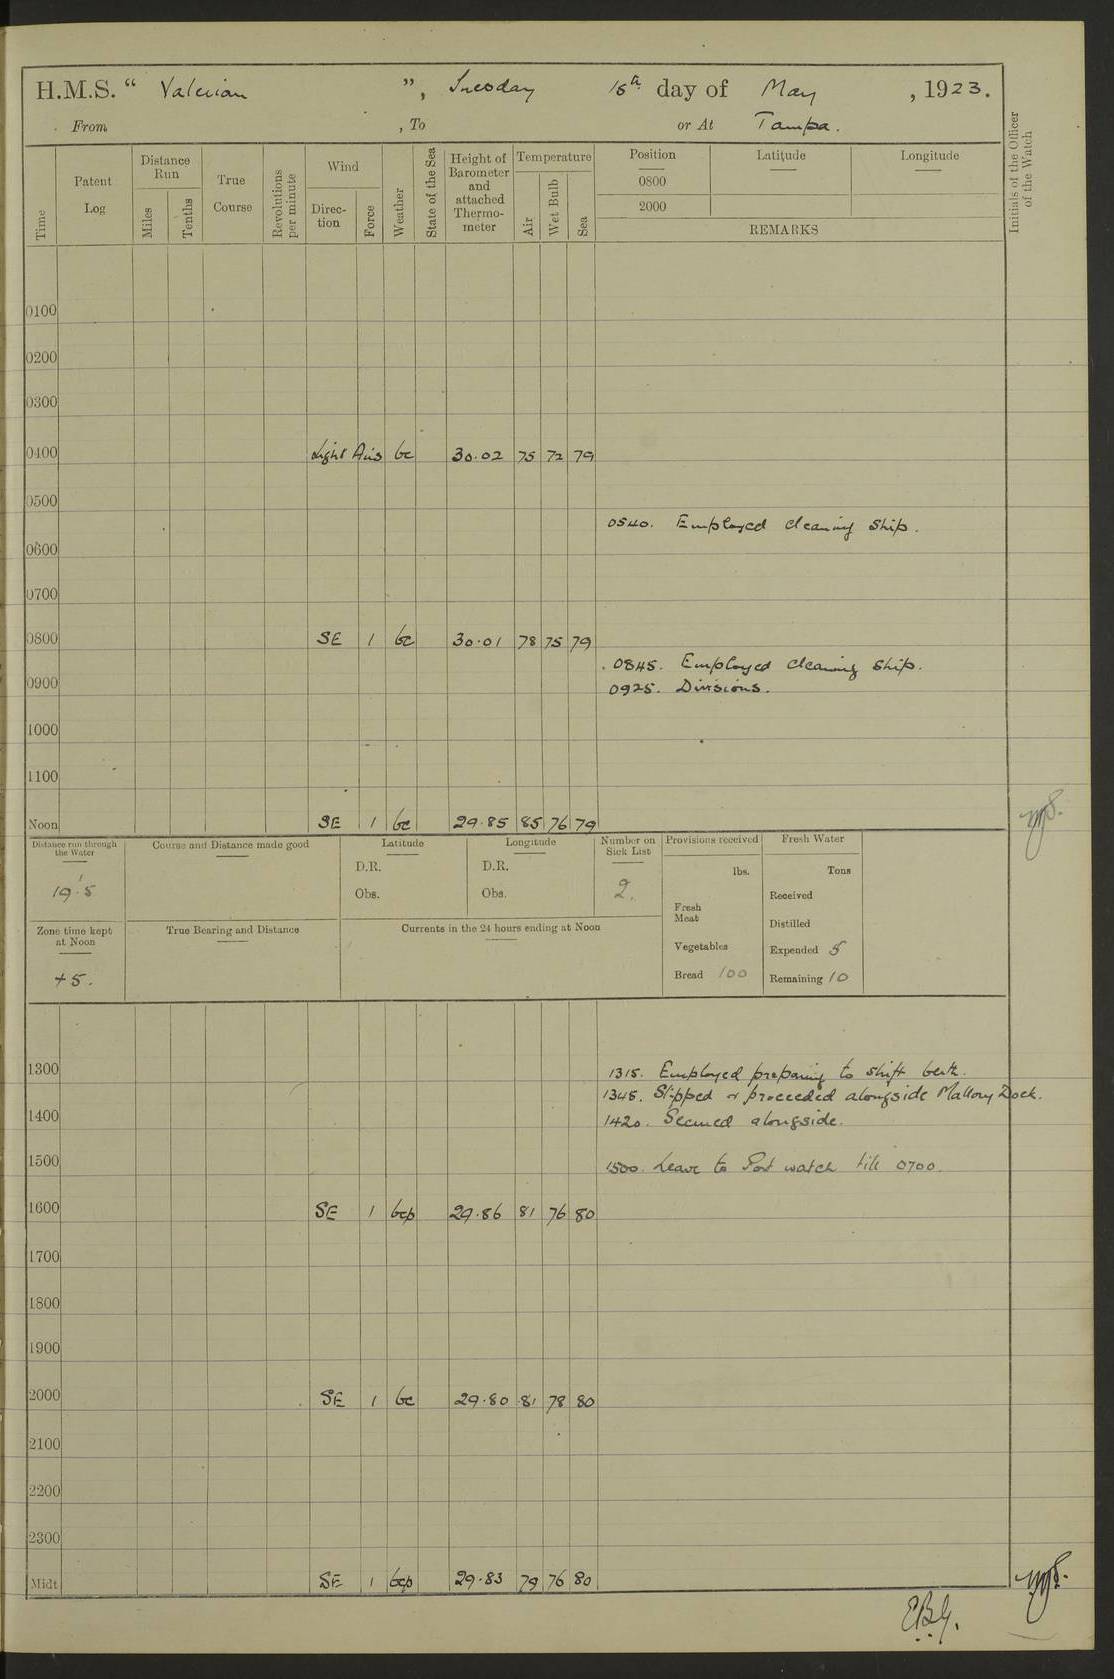 H.M.S. “ Valerian ”, Tuesday 15th day of May , 1923.
From , To or At Tampa.
Time Patent Log Distance Run Miles Tenths True Course Revolutions per minute Wind Direc- tion Force Weather State of the Sea Height of Barometer and attached Thermo- meter Temperature Air Wet Bulb Sea Position Latitude Longitude Initials of the Officer of the Watch
0800
2000
REMARKS
0100
0200
0300
0400 Light Airs bc 30.02 75 72 79
0500
0540. Employed cleaning ship.
0600
0700
0800 SE 1 bc 30.01 78 75 79
0845. Employed cleaning ship.
0900 0925. Divisions.
1000
1100
Noon SE 1 bc 29.85 85 76 79
Distance run through the Water Course and Distance made good Latitude Longitude Number on Sick List Provisions received Fresh Water
D.R. D.R. lbs. Tons
19'.5 Obs. Obs. 2. Received
Fresh Meat
Zone time kept at Noon True Bearing and Distance Currents in the 24 hours ending at Noon Distilled
Vegetables Expended 5
+5. Bread 100 Remaining 10
1300 1315. Employed preparing to shift berth.
1345. Slipped & proceeded alongside Mallory Dock.
1400 1420. Secured alongside.
1500 1500. Leave to Port watch till 0700.
1600 SE 1 bcp 29.86 81 76 80
1700
1800
1900
2000 SE 1 bc 29.80 81 78 80
2100
2200
2300
Midt SE 1 bcp 29.83 79 76 80
EBG.